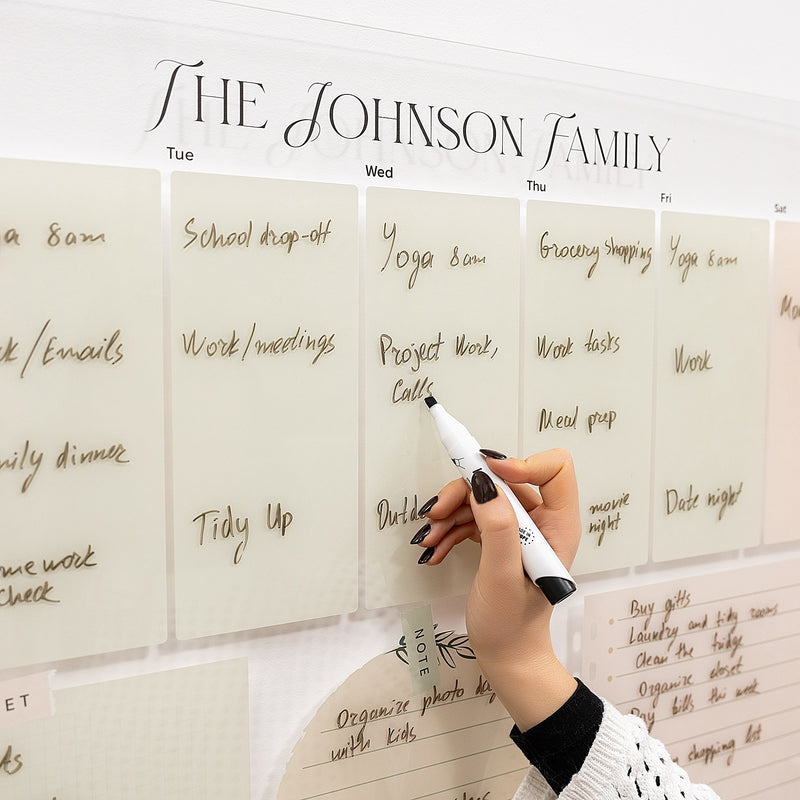 The Johnson Family
Tue
Wed
Thu
Fri
Sat
8am
/Emails
dinner
check
School drop-off
Work/meetings
Tidy Up
Yoga 8am
Project Work,
Calls
Grocery shopping
Work tasks
Meal prep
movie
night
Yoga 8am
Work
Date night
NOTE
Organize photo
with kids
Buy gifts
Laundry and tidy rooms
Clean the fridge
Organize closet
bills this week
shopping list